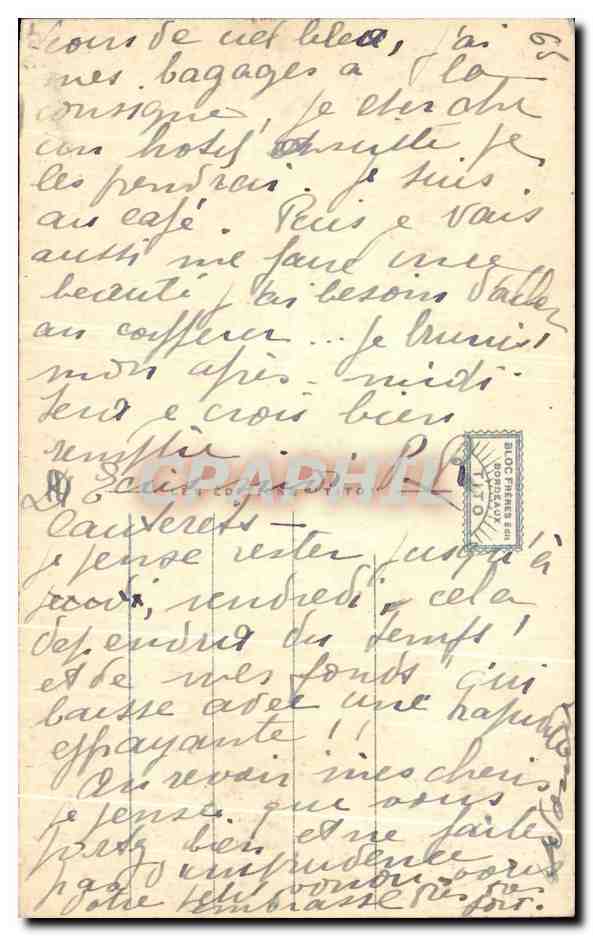 de ciel bleu, j'ai
mes bagages à la
consigne, je cherche
un hotel ensuite je
les prendrai. je suis
au café. Puis je vais
aussi me faire une
beauté j'ai besoin d'aller
au coiffeur... je brunis!
mon après-midi
sera je crois bien
remplie
65
Ecris moi. P. R.
Cauterets —
je pense rester jusqu'à
jeudi, vendredi, cela
dependra du temps!
et de mes fonds qui
baisse avec une rapidité
effrayante!!
Au revoir mes cheris
je pense que vous
portez bien et ne faite
pas d'imprudence
votre vous
embrasse très très
fort.
BLOC FRÈRES Edit
BORDEAUX
TITO
CARTES COMPTOIR TITO
CPAPHIL.COM